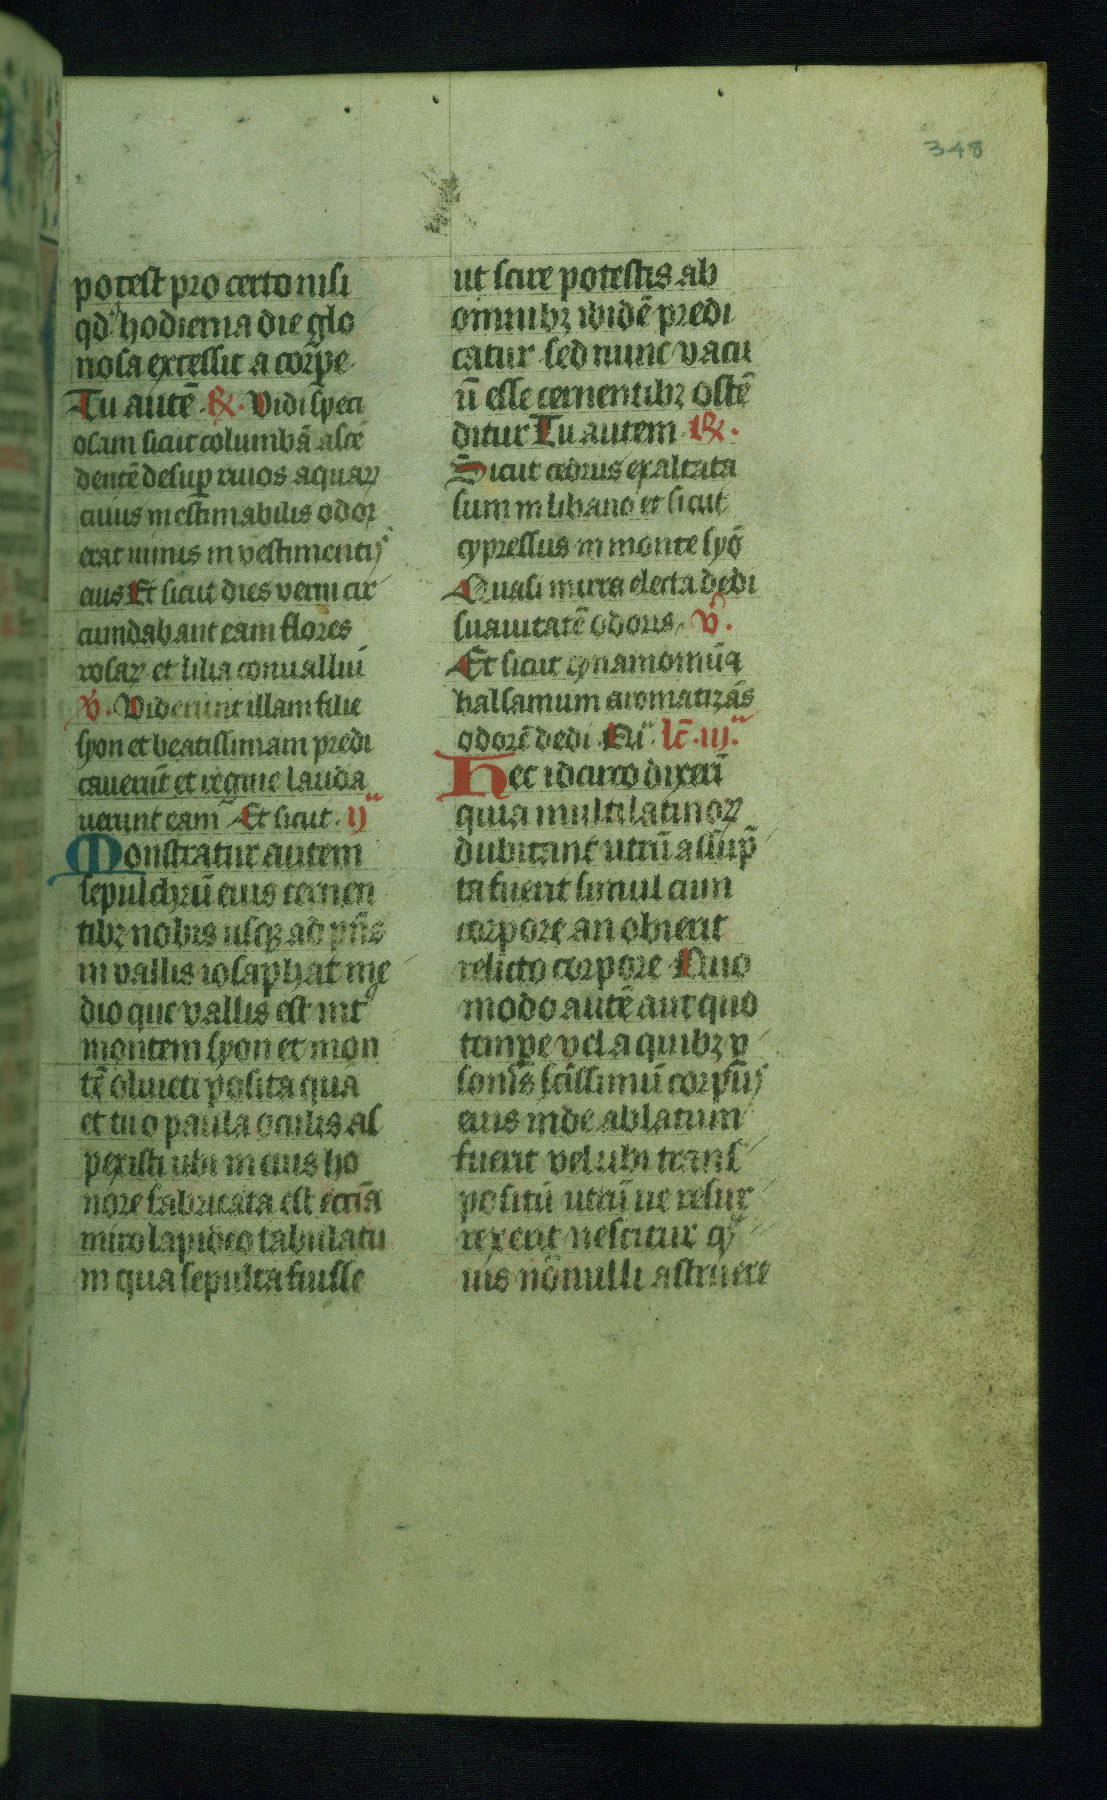 348
potest pro certo nisi
qd hodierna die glo
riosa excessit a corpe
Tu autē ℟. Vidi speci
osam sicut columbā ascē
dentē desuꝑ riuos aquaꝝ
cuius inestimabilis odor
erat nimis in vestimentis
eius Et sicut dies verni cir
cumdabant eam flores
rosaꝝ et lilia conualliū
℣. Viderunt illam filie
syon et beatissimam predi
cauerūt et regine lauda
uerunt eam Et sicut. ij
Monstratur autem
sepulchrū eius cernen
tibꝫ nobis usqꝫ ad pn̄s
in vallis iosaphat me
dio que vallis est int
montem syon et mon
tē oliueti posita quā
et tu o paula oculis as
pexisti ubi in eius ho
nore fabricata est ecc̄ia
miro lapideo tabulatu
in qua sepulta fuisse
ut scire potestis ab
omnibꝫ ibidē predi
catur sed nunc vacu
ū esse cernentibꝫ ostē
ditur Tu autem ℟.
Sicut cedrus exaltata
sum in libano et sicut
cypressus in monte syō
Quasi mirra electa dedi
suauitatē odoris. ℣.
Et sicut cynamomū ⁊
balsamum aromatizās
odorē dedi Q̄i lc̄. iij.
Hec idcirco dixerī
quia multi latinoꝝ
dubitant utrū assūp
ta fuerit simul cum
corpore an obierit
relicto corpore Quo
modo autē aut quo
tempe vel a quibꝫ ꝑ
sonis sc̄issimū corpus
eius inde ablatum
fuerit vel ubi trans
positū utrū ue resur
rexerit nescitur qͣ
uis nōnulli astruere